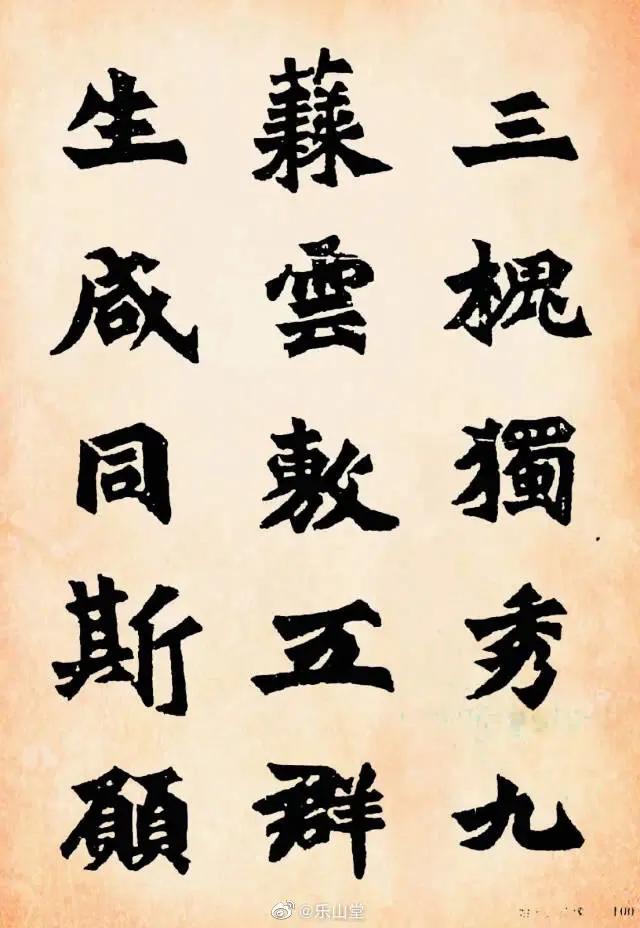 三槐獨秀九
蕀雲敷五群
生咸同斯願
@乐山堂
100